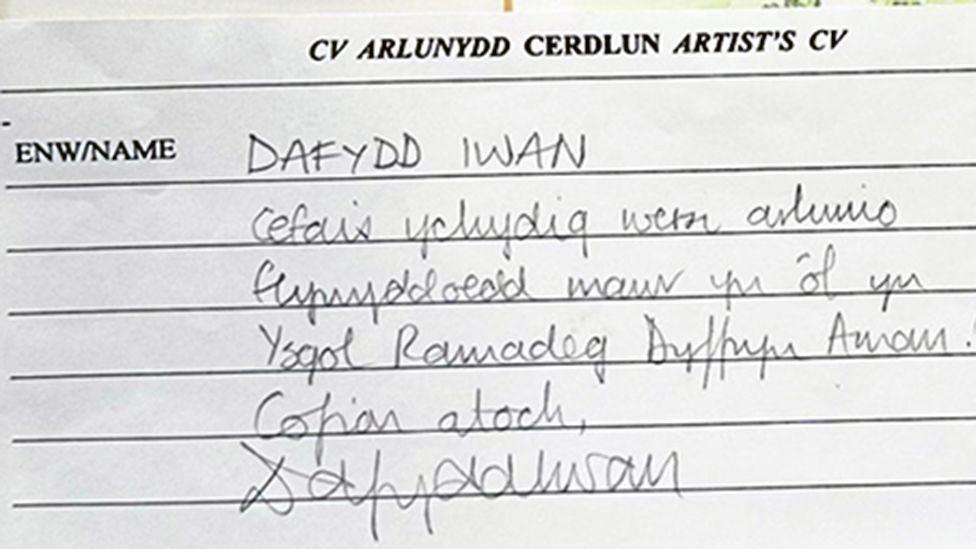 CV ARLUNYDD CERDLUN ARTIST'S CV
ENW/NAME DAFYDD IWAN
Cefais ychydig wersi arlunio
flynyddoedd mawr yn ôl yn
Ysgol Ramadeg Dyffryn Aman.
Cofion atoch,
Dafydd Iwan